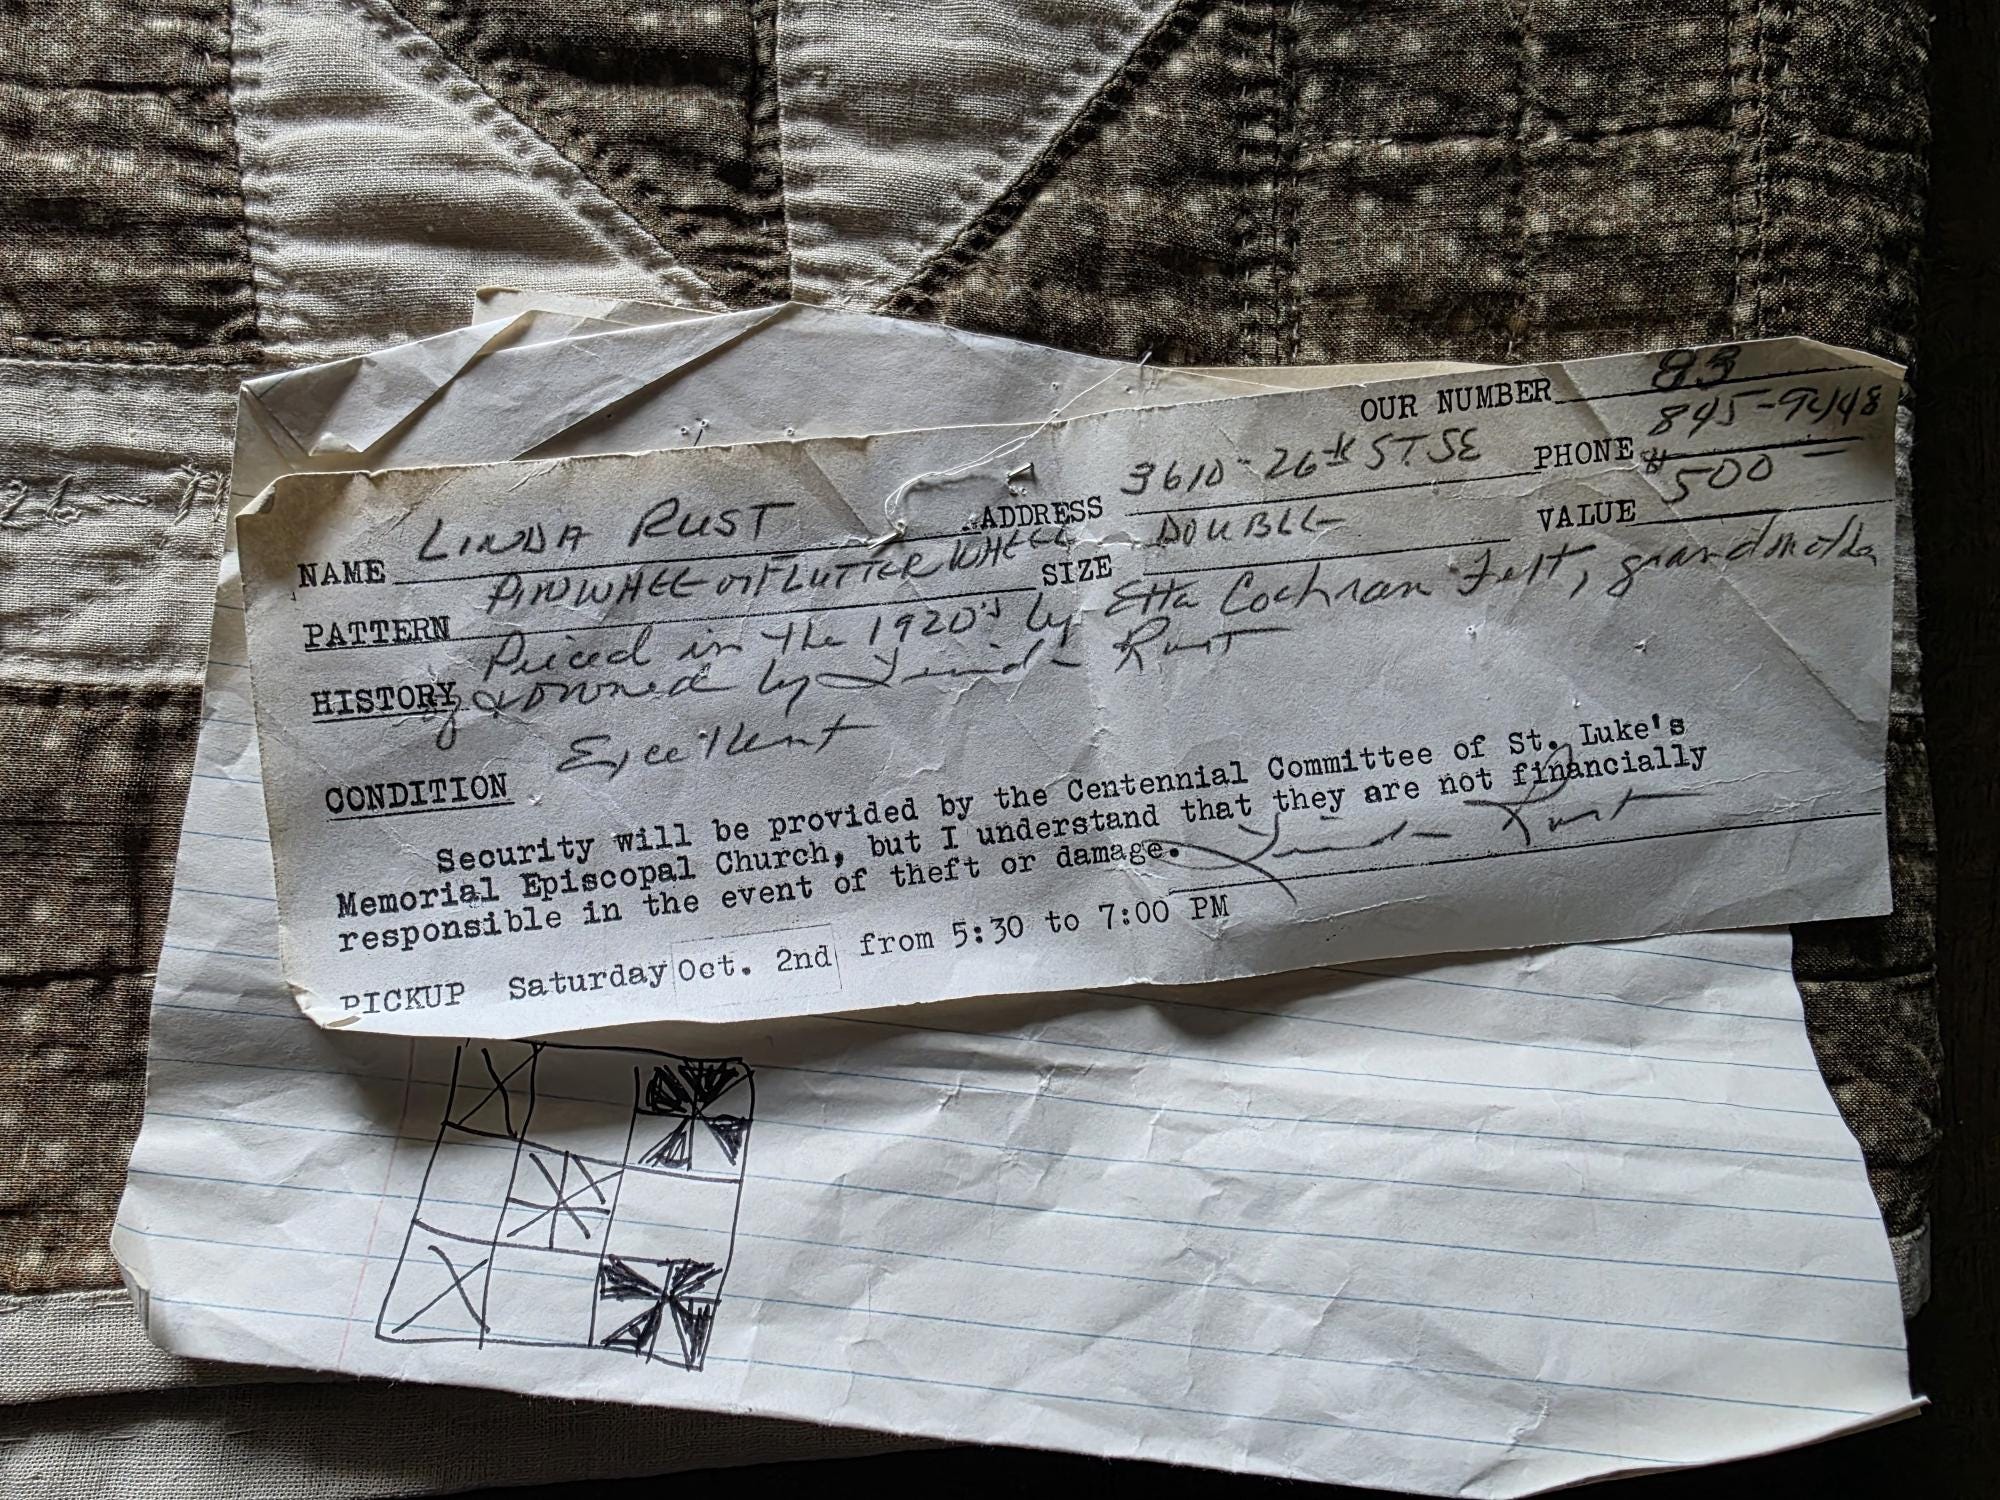 OUR NUMBER 83
NAME LINDA RUST ADDRESS 3610-26th ST SE PHONE 845-9448
PATTERN PINWHEEL or FLUTTER WHEEL SIZE DOUBLE VALUE $500
HISTORY Pieced in the 1920's by Etta Cochran Felt, grandmother
of & owned by Linda Rust
CONDITION Excellent
Security will be provided by the Centennial Committee of St. Luke's
Memorial Episcopal Church, but I understand that they are not financially
responsible in the event of theft or damage. Linda Rust
PICKUP Saturday Oct. 2nd from 5:30 to 7:00 PM